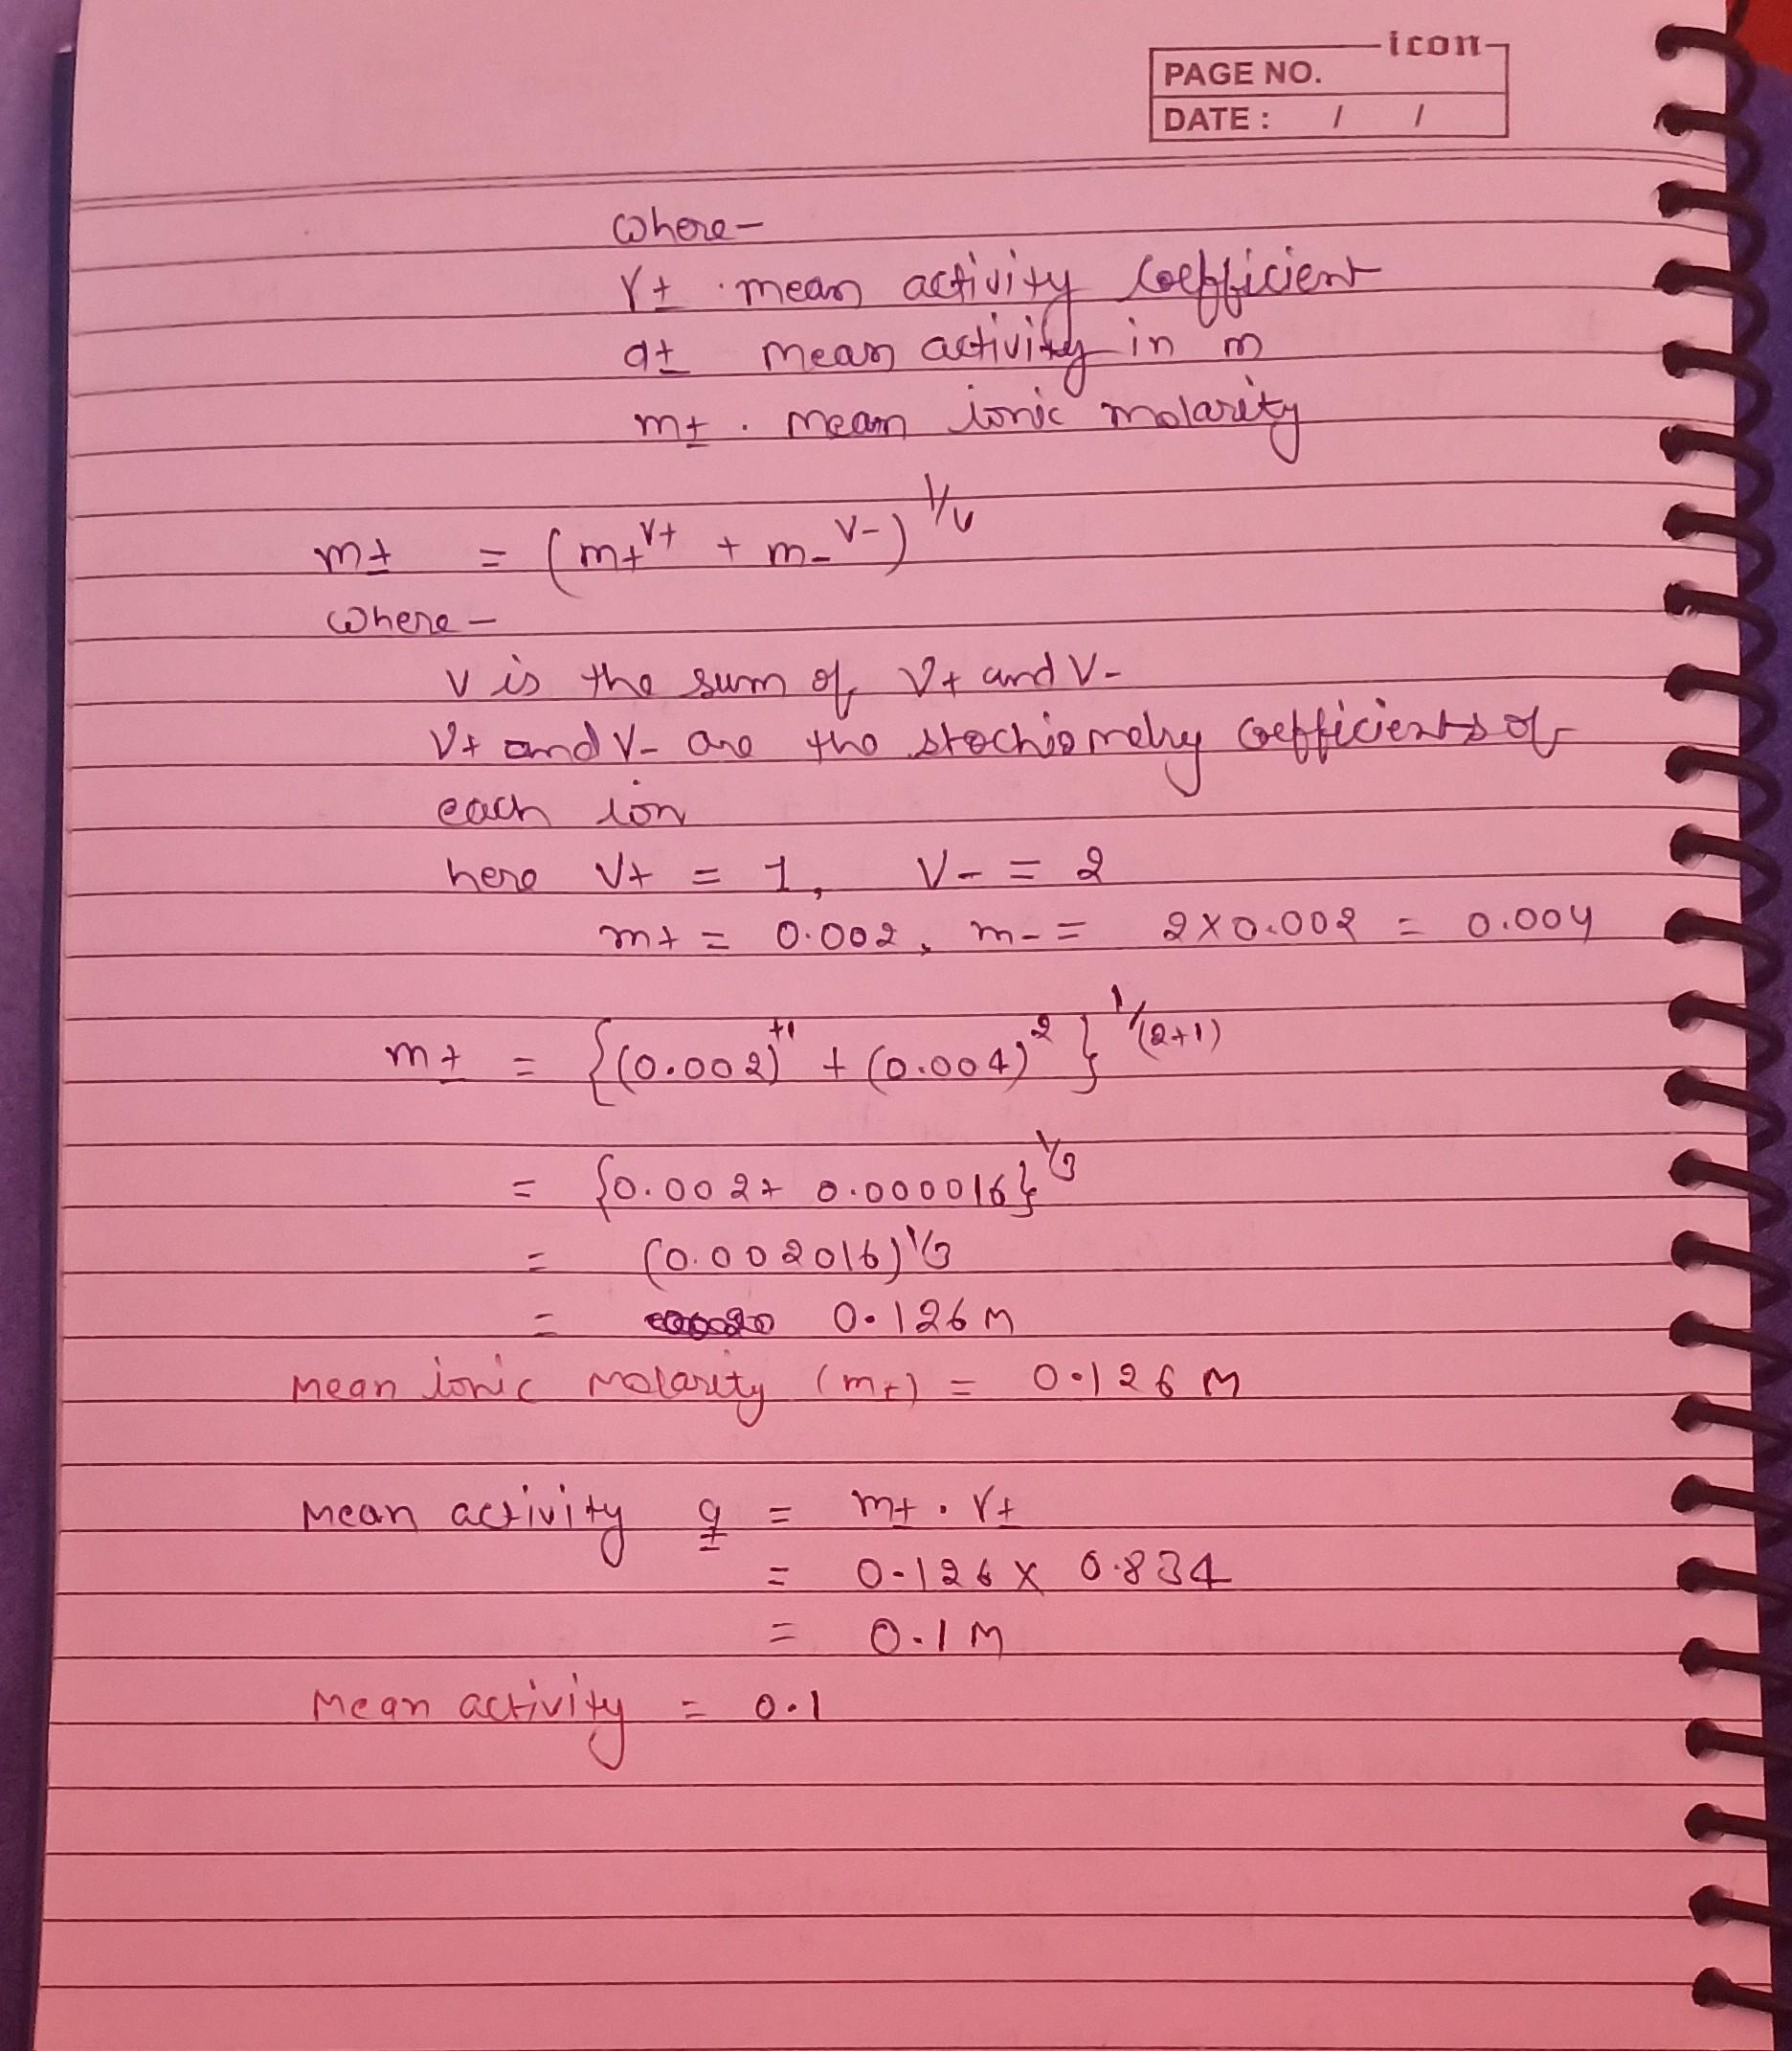 icon
PAGE NO.
DATE : / /
where-
γ± . mean activity Coefficient
a± mean activity in m
m± . mean ionic molarity
m± = (m+^V+ + m-^V-)^1/V
where -
V is the sum of V+ and V-
V+ and V- are the stochiometry Coefficients of
each ion
here V+ = 1, V- = 2
m+ = 0.002, m- = 2x0.002 = 0.004
m± = {(0.002)^+1 + (0.004)^2}^1/(2+1)
= {0.002+ 0.000016}^1/3
= (0.002016)^1/3
= 0.126 M
Mean ionic Molarity (m±) = 0.126 M
Mean activity a± = m± . γ±
= 0.126 x 0.834
= 0.1 M
Mean activity = 0.1